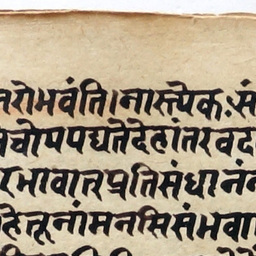 तरोभवंति।नास्त्येक.सं
चोपपद्यतेदेहांतरवद
रभावात्प्रतिसंधानं
हेतूनांमनसिसंभवा